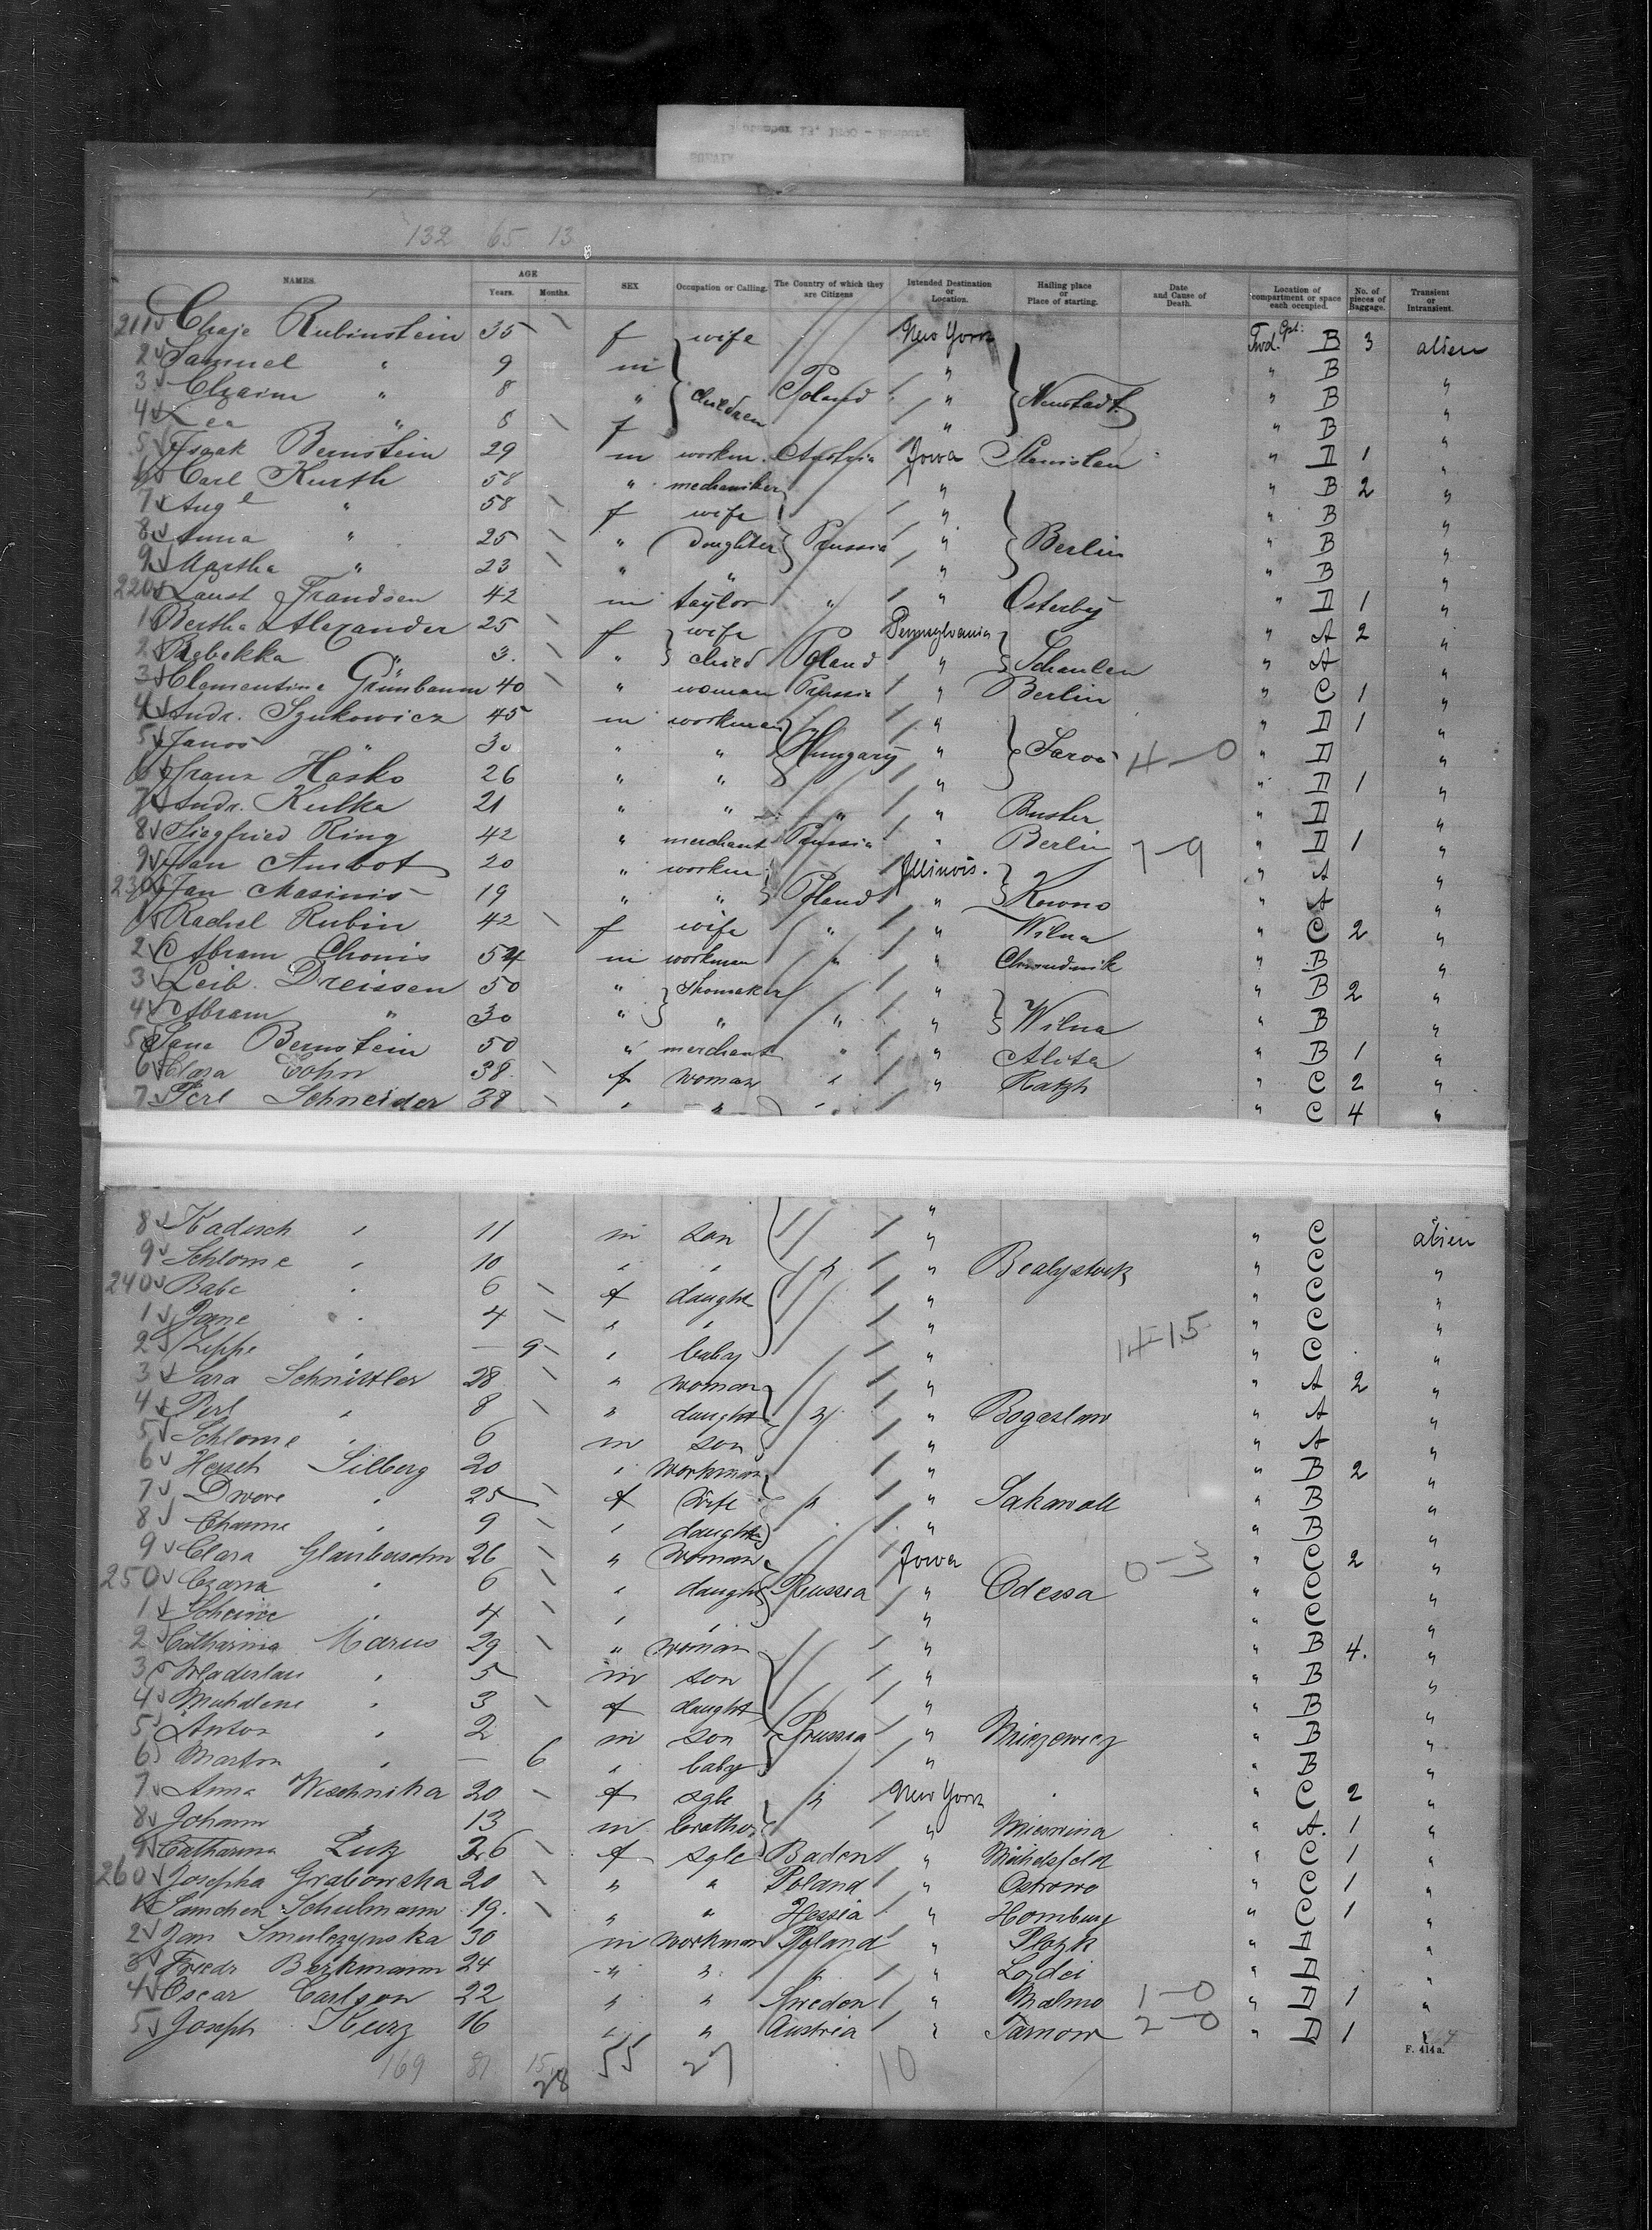 132 65 13
NAMES. AGE Years. Months. SEX Occupation or Calling. The Country of which they are Citizens Intended Destination or Location. Hailing place or Place of starting. Date and Cause of Death. Location of compartment or space each occupied. No. of pieces of Baggage. Transient or Intransient.
211 Chaje Rubinstein 35 f wife New York Fwd. Cpt: B 3 alien
2 Samuel " 9 m " " B "
3 Chaim " 8 " children Poland " Neustadt " B "
4 Lea " 8 f " " B "
5 Isaak Bernstein 29 m workm. Austria Iowa Stanislau " D 1 "
6 Carl Kurth 58 " mechaniker " " B 2 "
7 Aug e " 58 f wife " " B "
8 Anna " 25 " Doughter Prussia " Berlin " B "
9 Martha " 23 " " " " B "
220 Laust Frandsen 42 m taylor " " Osterby " D 1 "
1 Bertha Alexander 25 f wife Pennsylvania " A 2 "
2 Rebekka " 3. " child Poland " Schaulen " A "
3 Clementine Grünbaum 40 " woman Prussia " Berlin " C 1 "
4 Andr. Szukowicz 45 m workman " " D 1 "
5 Janos " 30 " " Hungary " Saros 4-0 " D "
6 Franz Hasko 26 " " " " D 1 "
7 Andr. Kulka 21 " " " " Buster " D "
8 Siegfried Ring 42 " merchant Prussia " Berlin 7-9 " D 1 "
9 Jan Ambot 20 " workm. Illinois. " A "
230 Jan Masinis 19 " " Poland " Kowno " A "
1 Rachel Rubin 42 f wife " " Wilna " C 2 "
2 Abram Chonis 54 m workman " " " B "
3 Leib Dreissen 50 " Shomaker " " B 2 "
4 Abram " 30 " " " " Wilna " B "
5 Bernstein 50 " merchant " " Alita " B 1 "
6 Clara Cohn 38 f woman " " " C 2 "
7 Perl Schneider 38 " " " " C 4 "
8 Kadisch " 11 m son " " C alien
9 Schlome " 10 " " " " Bealystock " C "
240 Babe " 6 f daught " " C "
1 " 4 " " " " C "
2 Zippe " — 9 " baby " 14-15 " C "
3 Sara Schnittler 28 " woman " " A 2 "
4 Perl " 8 " daught " " Bogaslaw " A "
5 Schlome " 6 m son " " A "
6 Hersch Silberg 20 " workman " " B 2 "
7 Dwore " 25 f wife " " " B "
8 Channe " 9 " daught " " B "
9 Clara Glaubersohn 26 " woman Iowa 0-3 " C 2 "
250 " 6 " daught Russia " Odessa " C "
1 Scheine " 4 " " " " C "
2 Catharina Marus 29 " woman " " B 4. "
3 Wladislaus " 5 m son " " B "
4 " 3 f daught " " B "
5 Anton " 2 m son Prussia " " B "
6 Martin " — 6 " baby " " B "
7 Anna Wischnika 20 f sgle " New York " C 2 "
8 Johann " 13 m brother " " A. 1 "
9 Catharina Lutz 26 f sgle Baden " Michelsfeld " C 1 "
260 Josepha Grabowska 20 " " Poland " Ostrowo " C 1 "
1 Schulmann 19. " " Hessia " Homburg " C 1 "
2 Jan Smulczynska 30 m workman Poland " Plozk " D "
3 Friedr Berkmann 24 " " " " " D "
4 Oscar Carlson 22 " " Sweden " Malmo 1-0 " D 1 "
5 Joseph Kurz 16 " " Austria " Tarnow 2-0 " D 1 "
169 81 15 28 55 27 10
F. 414a.